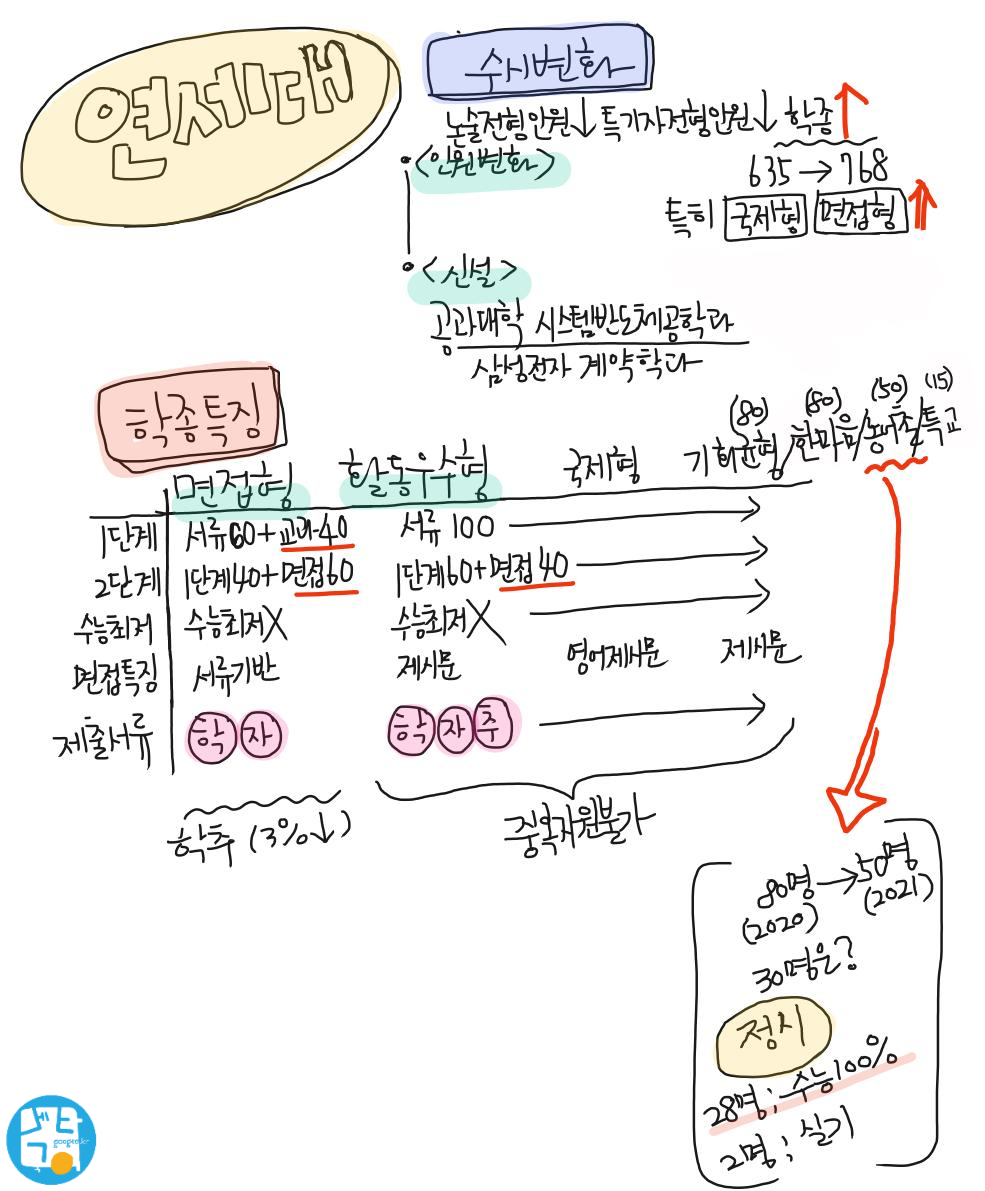 연세대
수시변화
논술전형인원↓ 특기자전형인원↓ 학종↑
<인원변화>
635 → 768
특히 국제형 면접형 ↑
<신설>
공과대학 시스템반도체공학과
삼성전자 계약학과
학종특징
(80) (80) (50) (15)
면접형 활동우수형 국제형 기회균형/한마음/농어촌/특교
1단계 서류60+교과40 서류 100 →
2단계 1단계40+면접60 1단계60+면접40 →
수능최저 수능최저X 수능최저X →
면접특징 서류기반 제시문 영어제시문 제시문
제출서류 학 자 학 자 추 →
학추 (3%↓) 중복지원불가
80명 → 50명
(2020) (2021)
30명은?
정시
28명; 수능100%
2명; 실기